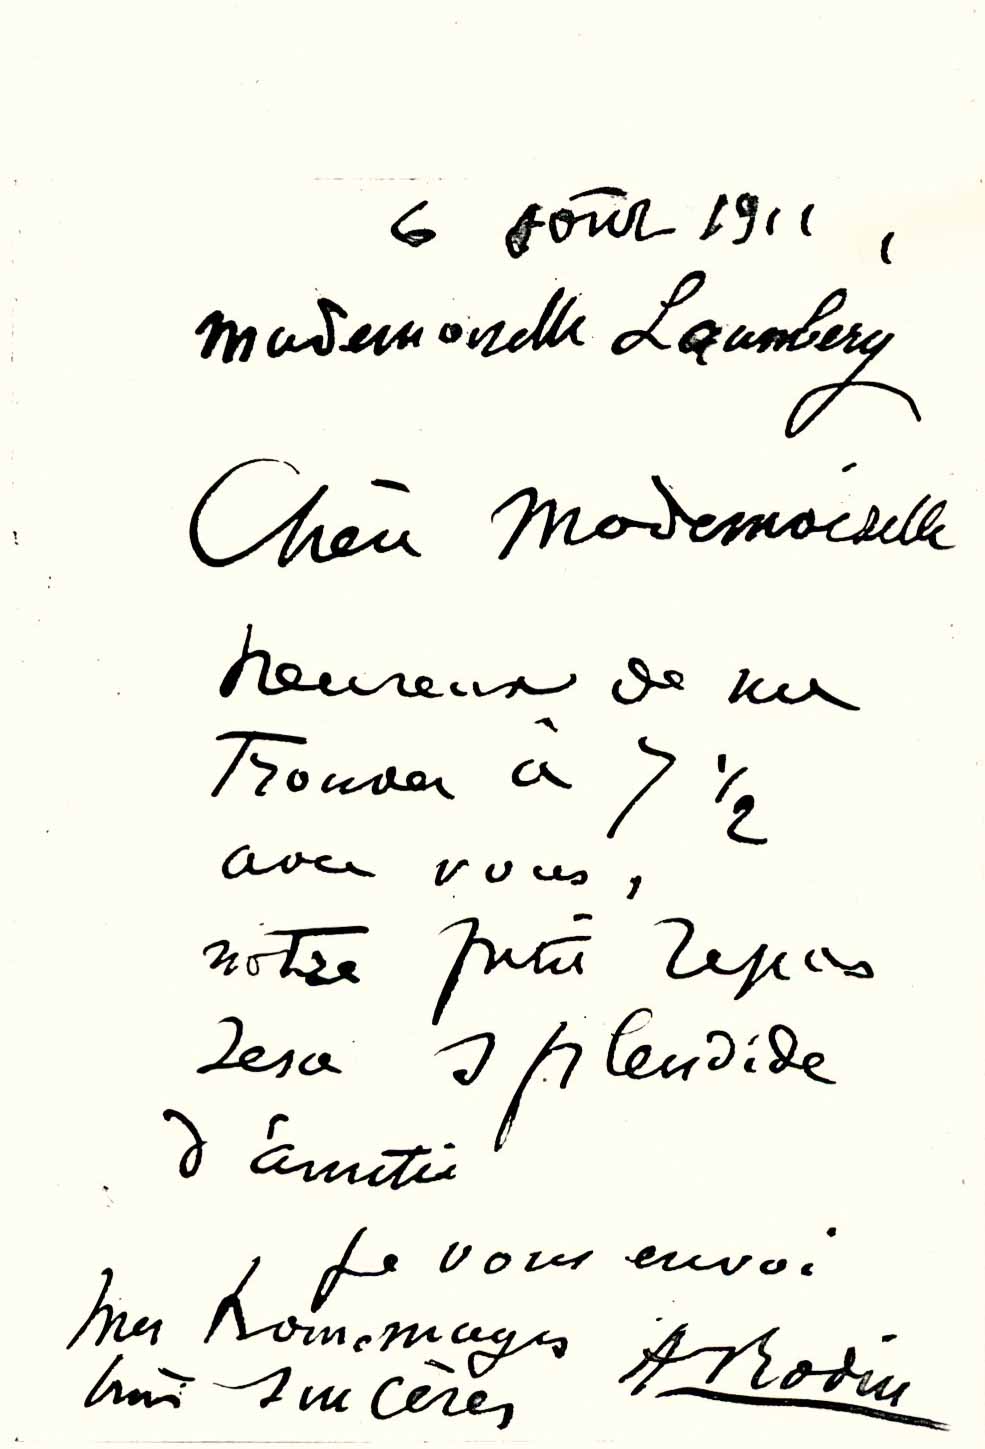 6 août 1911,
Mademoiselle Laumbery
Chère Mademoiselle
heureux de me
trouver à 7 1/2
avec vous,
notre petit repas
sera splendide
d'amitié
je vous envoi
mes hommages
très sincères
A Rodin